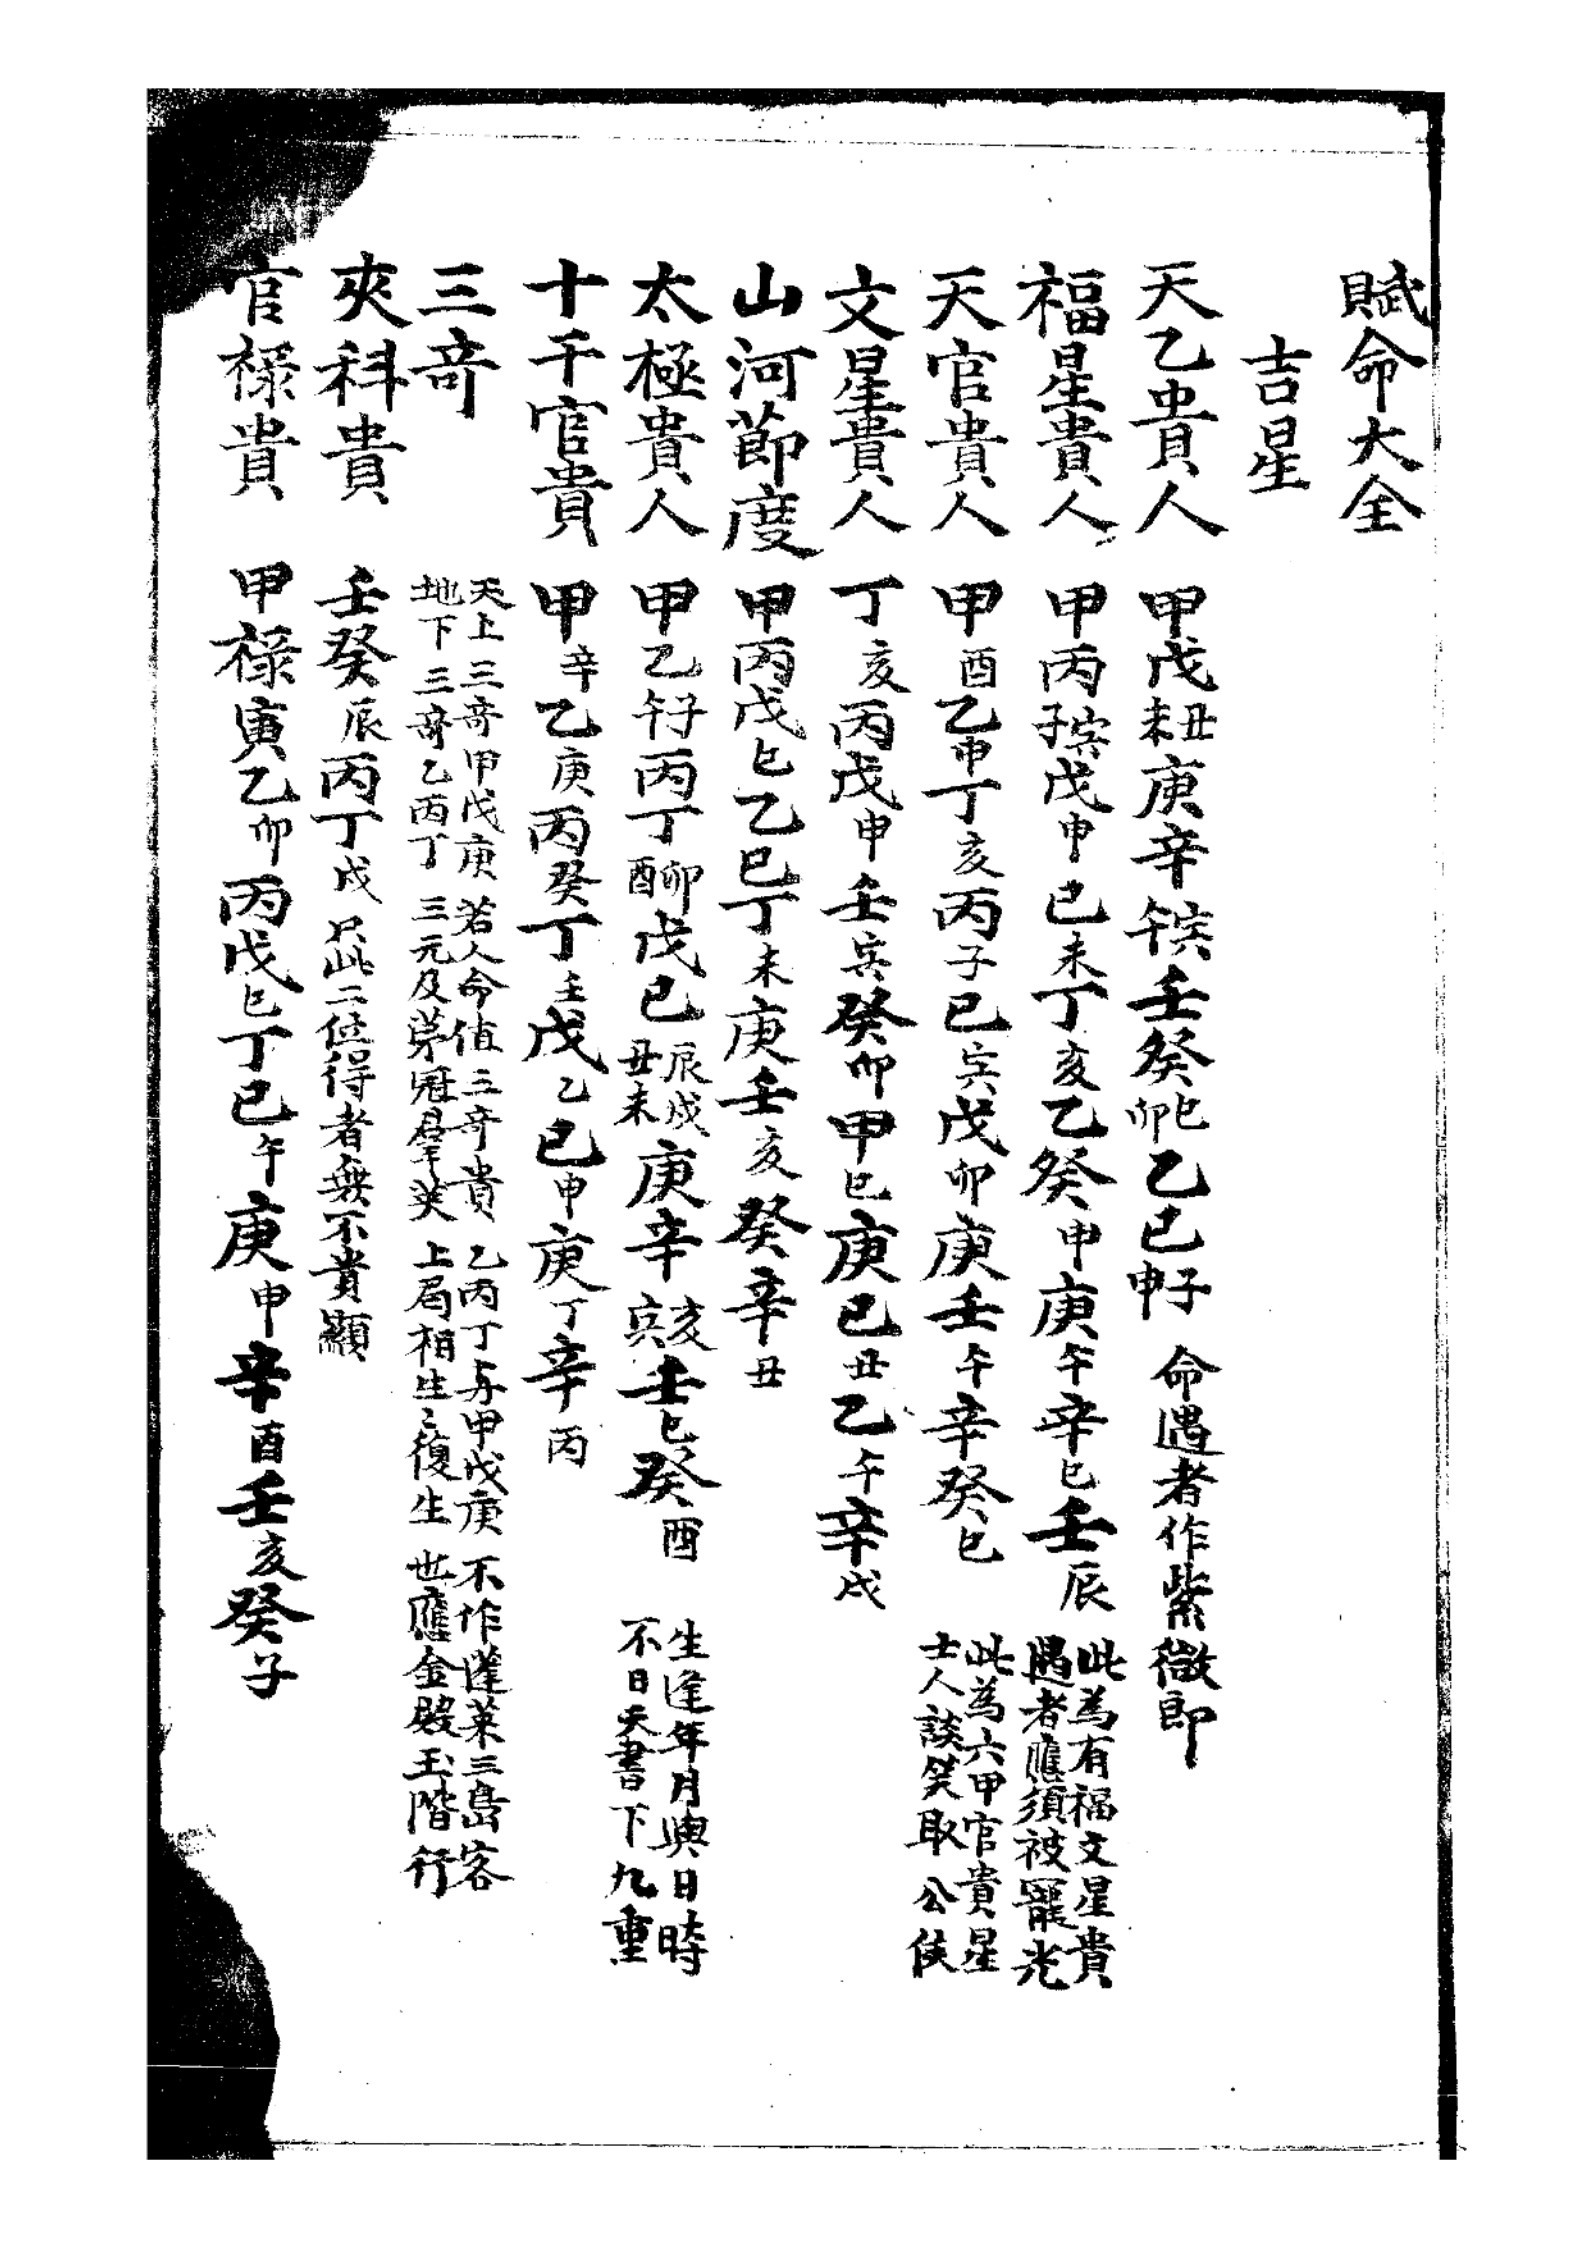 賦命大全
吉星
天乙貴人 甲戊丑未庚辛寅午壬癸巳卯乙己子申 命遇者作紫微郎
福星貴人 甲丙寅子戊申己未丁亥乙癸申庚午辛巳壬辰 此為有福文星貴 遇者應須被寵光
天官貴人 甲酉乙申丁亥丙子己寅戊卯庚壬午辛癸巳 此為六甲官貴星 士人談笑取公侯
文星貴人 丁亥丙戊申壬寅癸卯甲巳庚己丑乙午辛戌
山河節度 甲丙戊巳乙巳丁未庚壬亥癸辛丑
太極貴人 甲乙子午丙丁卯酉戊己辰戌丑未庚辛亥寅壬巳癸酉 生逢年月與日時 不日天書下九重
十干官貴 甲辛乙庚丙癸丁壬戊乙己申庚丁辛丙
三竒 天上三竒甲戊庚 地下三竒乙丙丁 若人命值三竒貴 三元及第冠羣英 乙丙丁与甲戊庚 上局相生〻復生 不作蓬莱三島客 也應金殿玉階行
夾科貴 壬癸辰丙丁戌 只此二位得者無不貴顯
官禄貴 甲禄寅乙卯丙戊巳丁己午庚申辛酉壬亥癸子